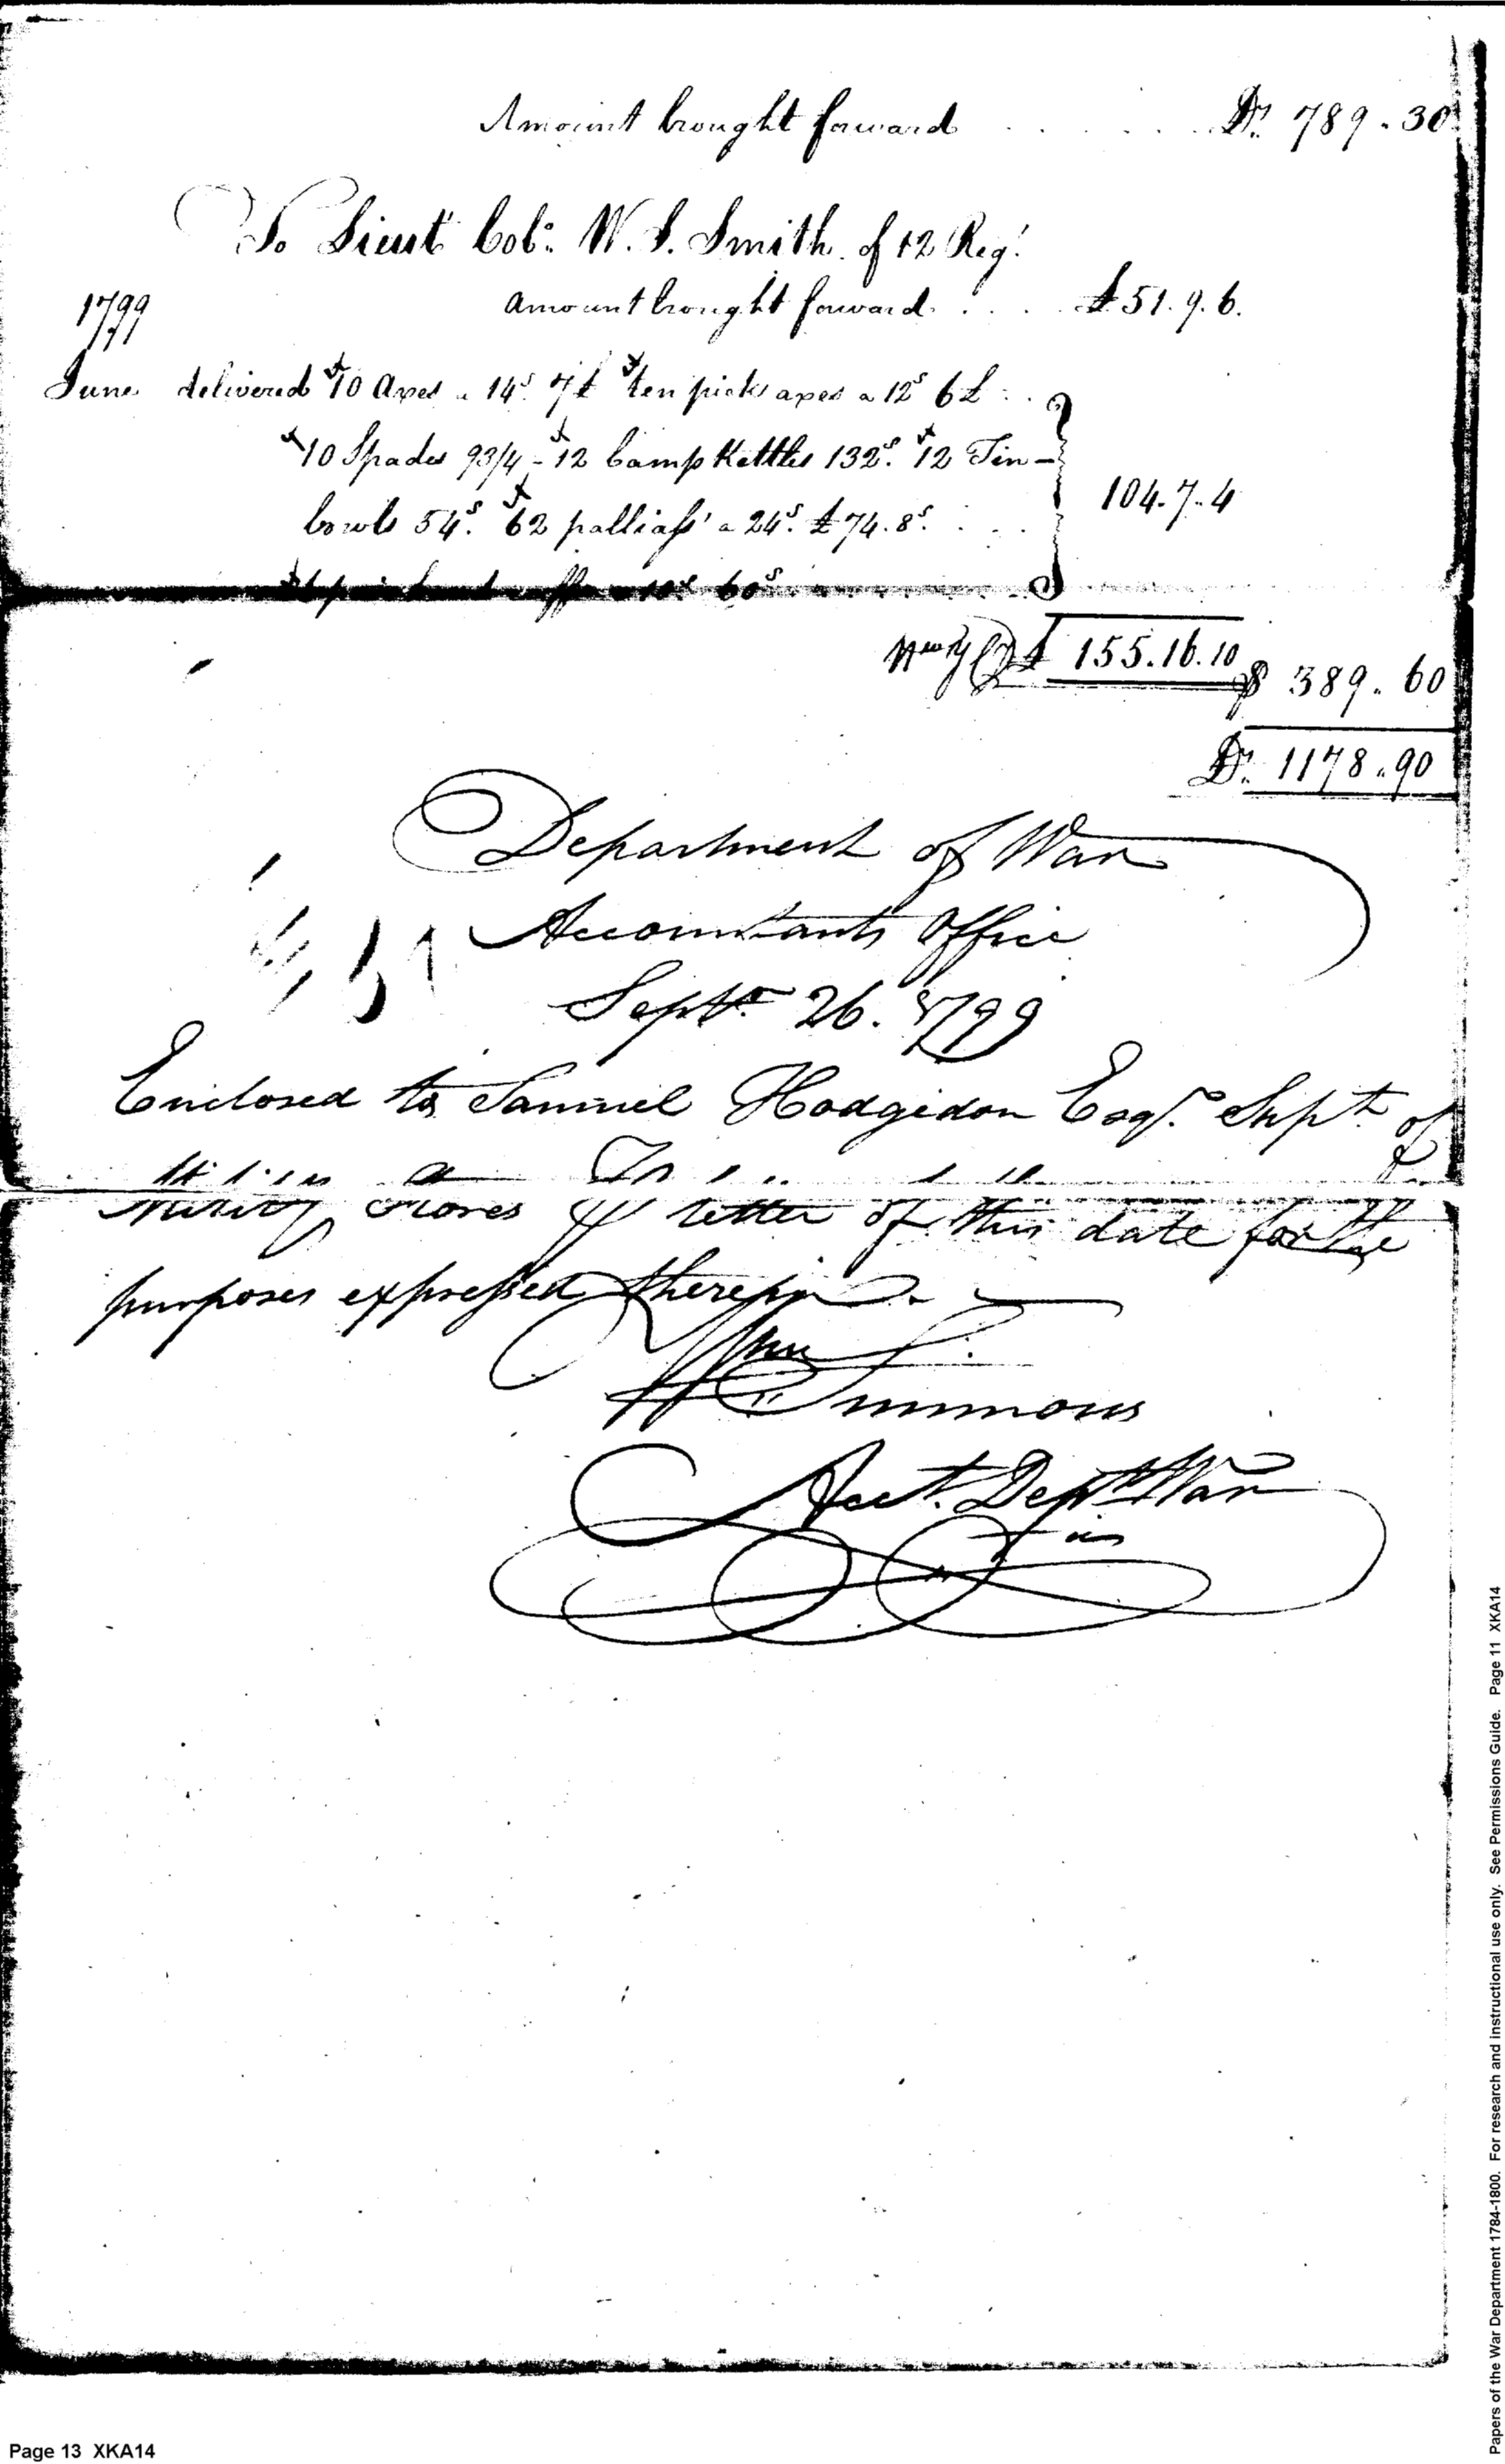 Amount brought forward . . . . . . Dr. 789.30
To Lieut Col: W. S. Smith of 12 Regt.
1799
amount brought forward. . . . . £51.9.6.
June delivered 10 Axes a 14s 7d ten picks axes a 12s 6d . .
10 Spades 93/4 - 12 Camp Kettles 132s. 12 Tin
bowls 54s. 62 palliass' a 24s. £74.8s. . . .
104.7.4
60s
£ 155.16.10
$ 389.60
Dr. 1178.90
Department of War
Accountants Office
Septr. 26. 1799
Enclosed to Samuel Hodgsdon Esqr. Supt. of
Military Stores pr letter of this date for the
purposes expressed therein.
Wm Simmons
Acct. Dept War
Page 13 XKA14
Papers of the War Department 1784-1800. For research and instructional use only. See Permissions Guide. Page 11 XKA14